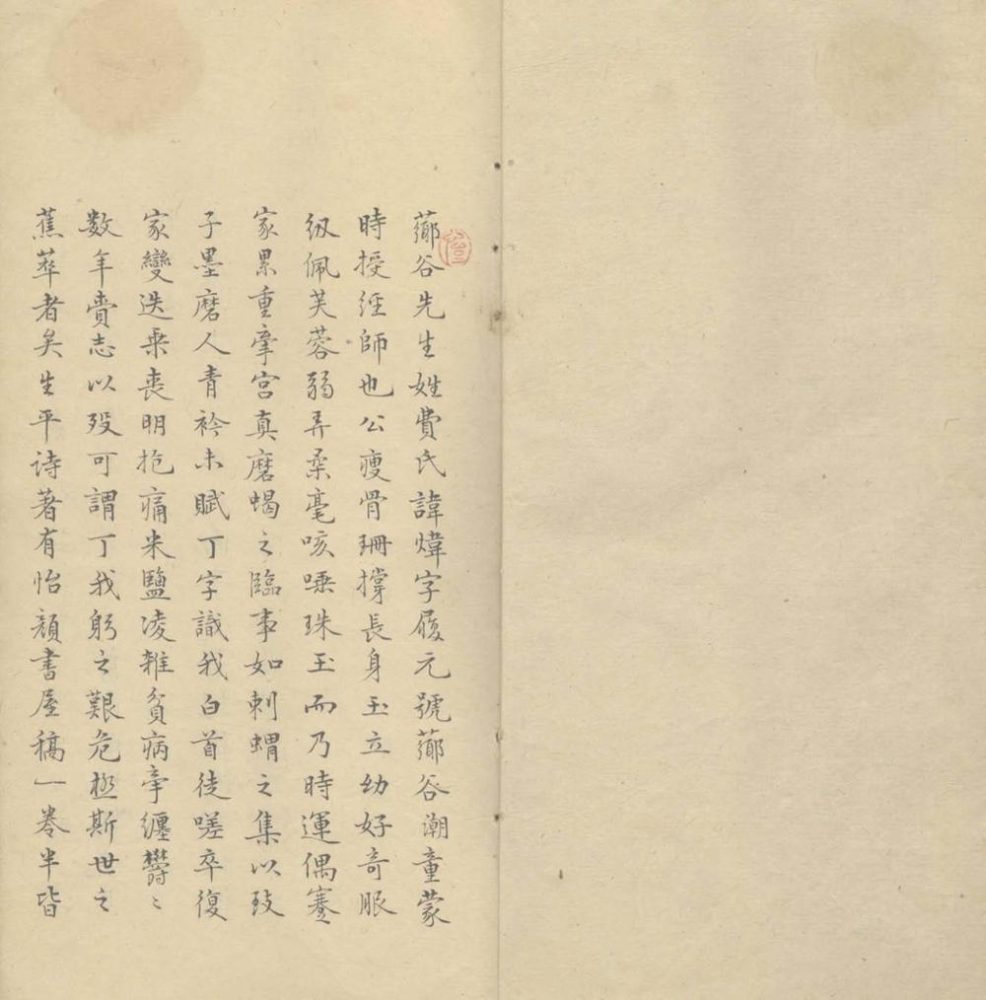 薌谷先生姓費氏諱煒字履元號薌谷潮童蒙
時授經師也公瘦骨珊撐長身玉立幼好奇服
紉佩芙蓉弱弄柔毫咳唾珠玉而乃時運偶蹇
家累重牽宮真磨蝎之臨事如刺蝟之集以致
子墨磨人青衿未賦丁字識我白首徒嗟卒復
家變迭乘喪明抱痛米鹽凌雜貧病牽纏欝〻
数年賫志以歿可謂丁我躬之艱危極斯世之
蕉萃者矣生平詩著有怡顏書屋稿一卷半皆